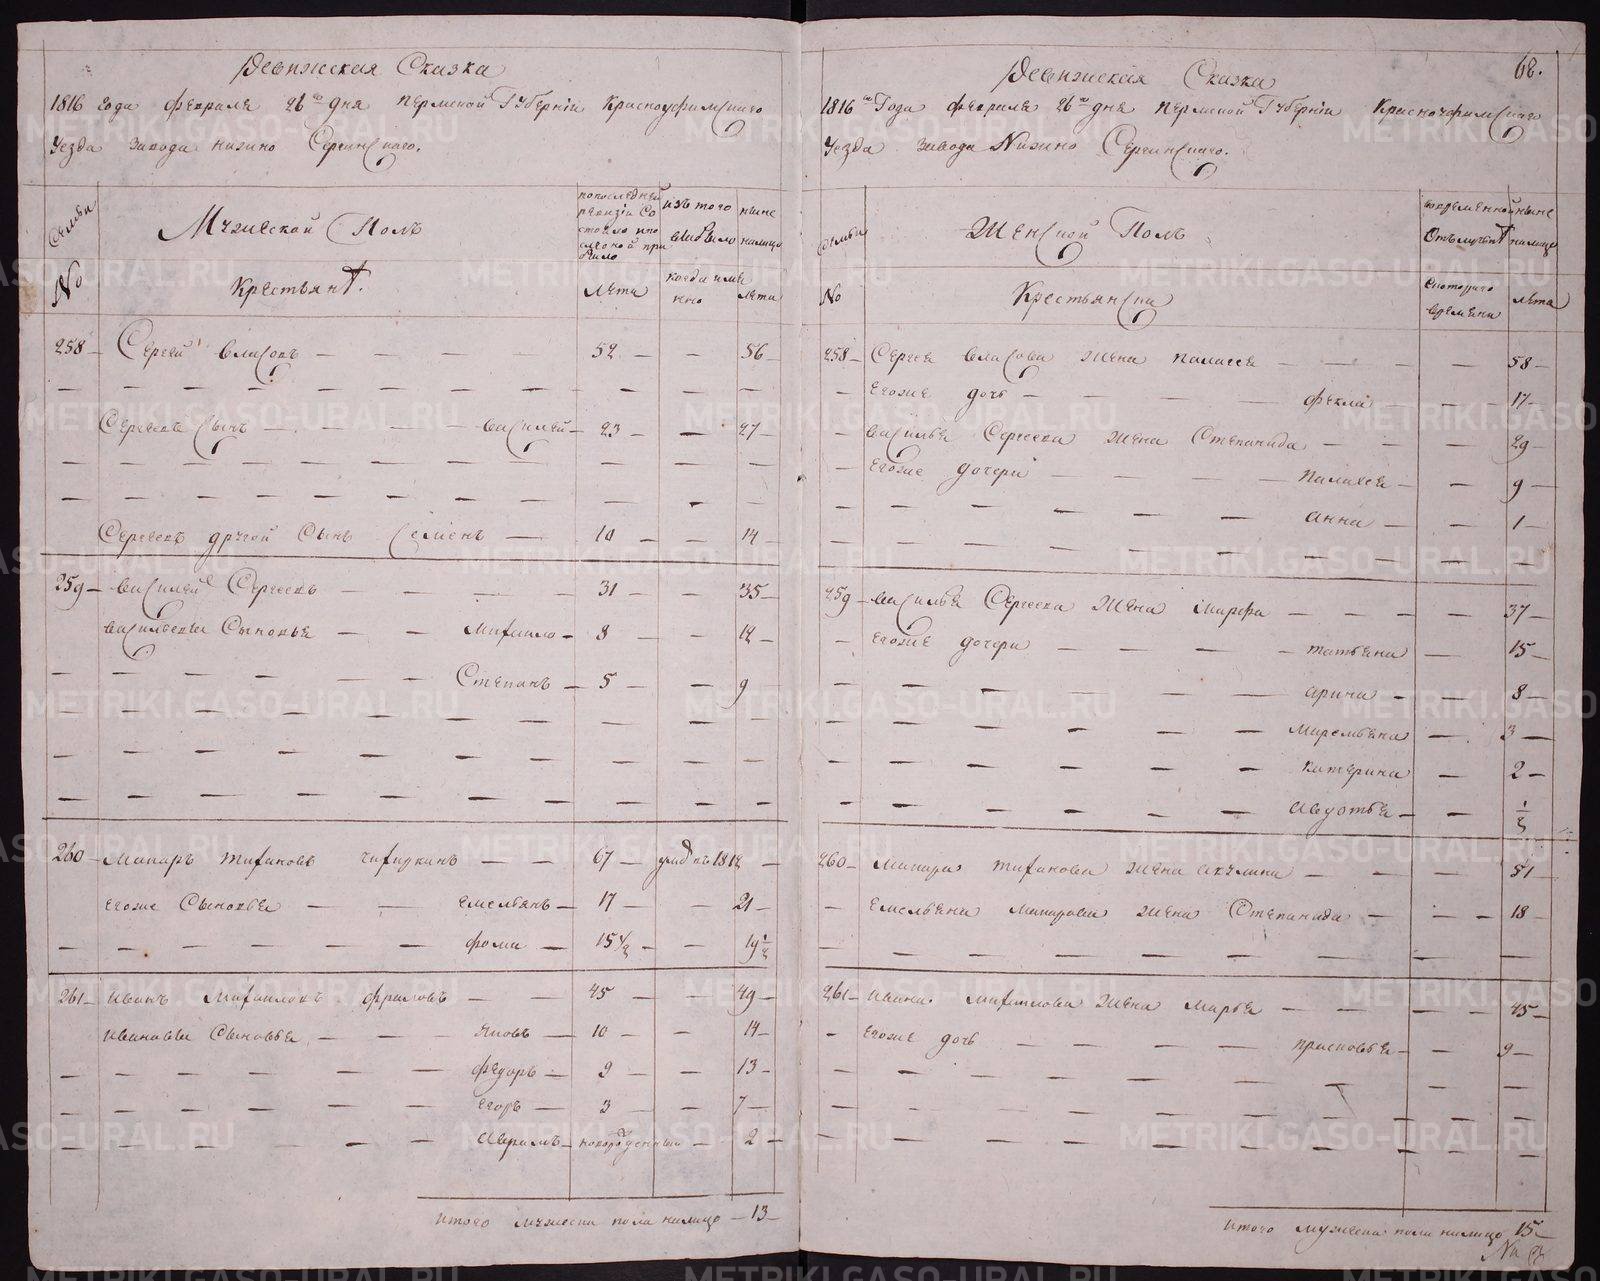 Ревижская Сказка
1816 года февраля 26го дня Пермской Губернiи Красноуфимскаго
Уезда завода нижно Сергинскаго.
Семьи
Мужеской Полъ
по последней ревизiи состояло и после оной прибыло
изъ того выбыло
ныне налицо
№
Крестьянъ.
Лета
когда имянно
Лета
258 Сергей Власовъ 52 56
Сергеевъ Сынъ Василей 23 27
Сергеевъ другой Сынъ Семенъ 10 14
259 Василей Сергеевъ 31 35
Васильевы Сыновья Михаило 8 12
Степанъ 5 9
260 Макаръ Тихановъ 67 умре въ 1812
Егоже Сыновья Емельянъ 17 21
Фома 15 1/2 19 1/2
261 Иванъ Михаиловъ 45 49
Ивановы Сыновья Яковъ 10 14
Федоръ 9 13
Егоръ 3 7
Аврамъ новорожденный 2
Итого мужеска пола налицо 13
Ревижская Сказка
68.
1816го Года февраля 26го дня Пермской Губернiи Красноуфимскаго
Уезда завода Нижно Сергинскаго.
Семьи
Женской Полъ
во временной отлучке
ныне налицо
№
Крестьянска
Скотораго времени
лета
258 Сергея Власова жена Палагея 58
Егоже дочь Фекла 17
Василья Сергеева жена Степанида 29
Егоже дочери Палагея 9
Анна 1
259 Василья Сергеева жена Марфа 37
Егоже дочери Татьяна 15
Арина 8
Маремьяна 3
Катерина 2
Авдотья 1/2
260 Макара Тиханова жена Акулина 51
Емельяна Макарова жена Степанида 18
261 Ивана Михаилова жена Марья 45
Егоже дочь Прасковья 9
Итого мужеска пола налицо 15
METRIKI.GASO-URAL.RU